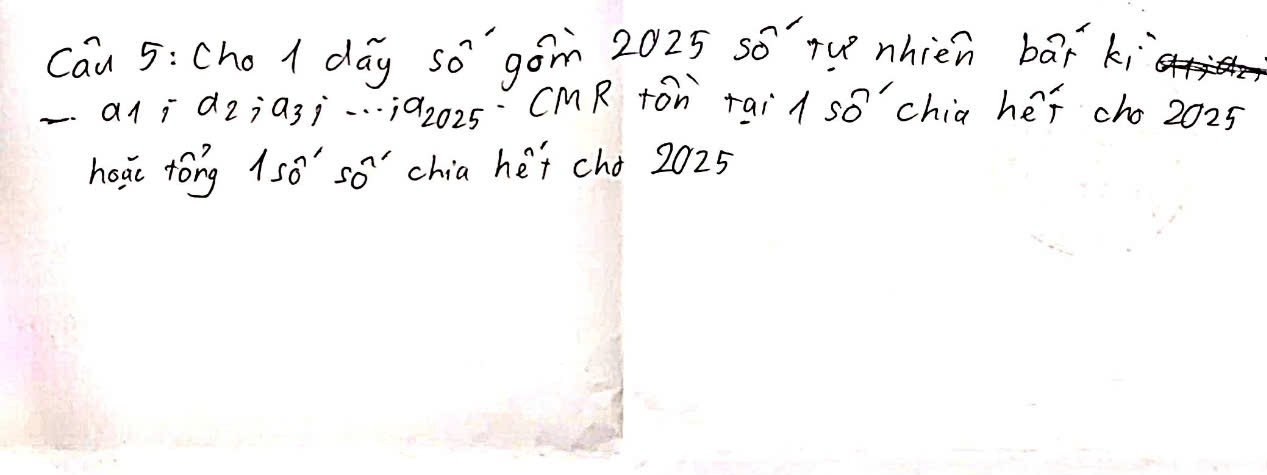 Câu 5: Cho 1 dãy số gồm 2025 số tự nhiên bất kì a1; a2;
a1; a2; a3; ...; a2025. CMR tồn tại 1 số chia hết cho 2025
hoặc tổng 1 số số chia hết cho 2025